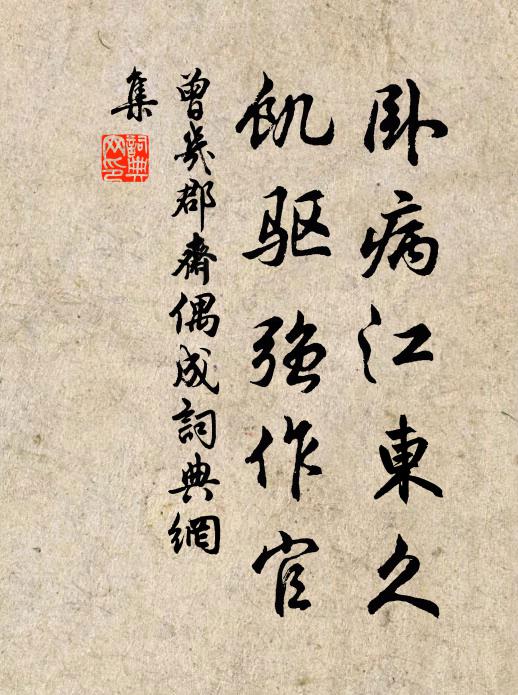 卧病江東久
飢驱強作官
曾幾郡齋偶成詞典網
集
詞典
网印